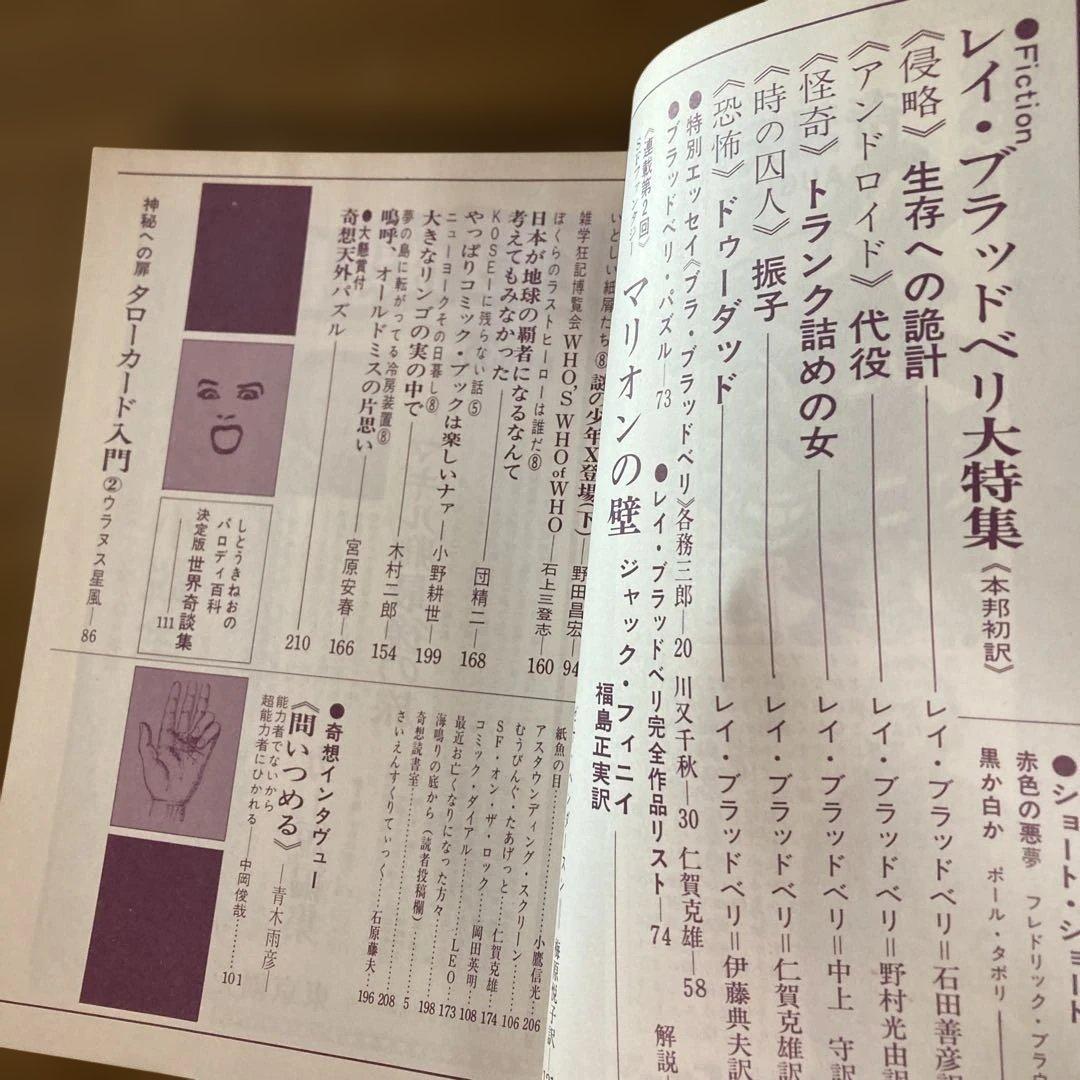 ●Fiction
レイ・ブラッドベリ大特集《本邦初訳》
《侵略》生存への詭計──レイ・ブラッドベリ=石田善彦訳
《アンドロイド》代役──レイ・ブラッドベリ=野村光由訳
《怪奇》トランク詰めの女──レイ・ブラッドベリ=中上 守訳
《時の囚人》振子──レイ・ブラッドベリ=仁賀克雄訳
《恐怖》ドゥーダッド──レイ・ブラッドベリ=伊藤典夫訳
●特別エッセイ《ブラ・ブラッドベリ》各務三郎─20 川又千秋─30 仁賀克雄─58
●ブラッドベリ・パズル─73 ●レイ・ブラッドベリ完全作品リスト─74
《連載第2回》
SFファンタジー
マリオンの壁 ジャック・フィニイ
福島正実訳
解説
●ショート・ショート
赤色の悪夢 フレドリック・ブラウ
黒か白か ポール・タボリ
いとしい紙屑たち⑧
謎の少年X登場(下)─野田昌宏─94
雑学狂記博覧会 WHO,S WHO of WHO─石上三登志─160
ぼくらのラストヒーローは誰だ⑧
日本が地球の覇者になるなんて
考えてもみなかった──団精二─168
KOSEーに残らない話⑤
やっぱりコミック・ブックは楽しいナァ─小野耕世─199
ニューヨークその日暮し⑧
大きなリンゴの実の中で──木村二郎─154
夢の島に転がってる冷房装置⑧
嗚呼、オールドミスの片思い──宮原安春─166
●大懸賞付
奇想天外パズル──210
しとうきねおの
パロディ百科
決定版 世界奇談集
111
神秘への扉 タローカード入門②ウラヌス星風─86
紙魚の目……小鷹信光…206
アスタウンディング・スクリーン……106
むうびんぐ・たあげっと……仁賀克雄…174
SF・オン・ザ・ロック……岡田英明…108
コミック・ダイアル……LEO…173
最近お亡くなりになった方々……198
海鳴りの底から(読者投稿欄)……5
奇想読書室……208
さいえんすくりてぃっく……石原藤夫…196
●奇想インタヴュー
《問いつめる》──青木雨彦─
能力者でないから
超能力者にひかれる──中岡俊哉……101